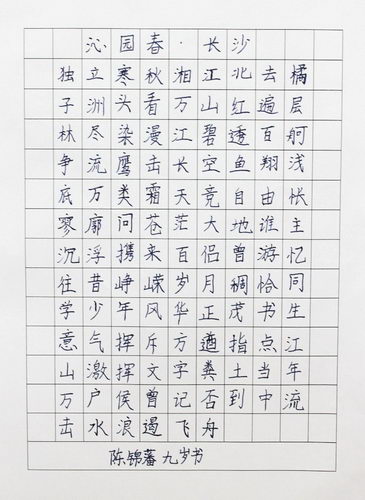 沁园春·长沙
独立寒秋湘江北去橘
子洲头看万山红遍层
林尽染漫江碧透百舸
争流鹰击长空鱼翔浅
底万类霜天竞自由怅
寥廓问苍茫大地谁主
沉浮携来百侣曾游忆
往昔峥嵘岁月稠恰同
学少年风华正茂书生
意气挥斥方遒指点江
山激挥文字粪土当年
万户侯曾记否到中流
击水浪遏飞舟
陈锦藩 九岁书